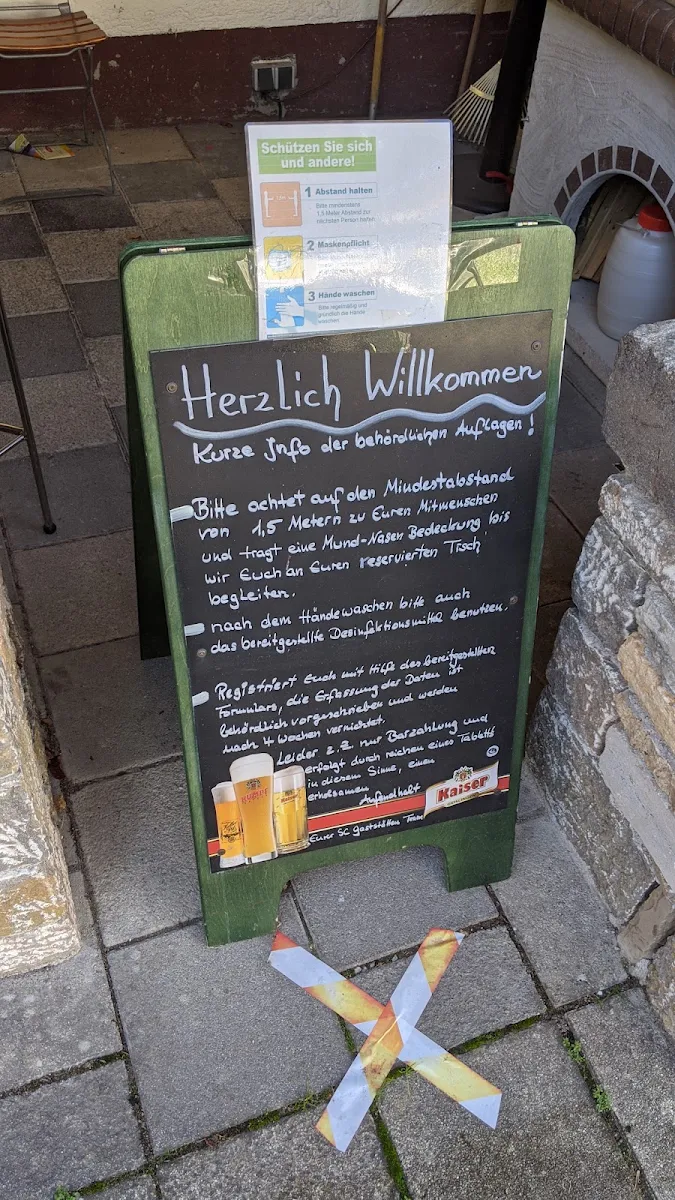 Schützen Sie sich
und andere!
1 Abstand halten
Bitte mindestens
1,5 Meter Abstand zur
nächsten Person halten
2 Maskenpflicht
3 Hände waschen
Bitte regelmäßig und
gründlich die Hände
waschen
Herzlich Willkommen
Kurze Info der behördlichen Auflagen!
Bitte achtet auf den Mindestabstand
von 1,5 Metern zu Euren Mitmenschen
und tragt eine Mund-Nasen Bedeckung bis
wir Euch an Euren reservierten Tisch
begleiten.
nach dem Händewaschen bitte auch
das bereitgestellte Desinfektionsmittel benutzen.
Registriert Euch mit Hilfe des bereitgestellten
Formulars, die Erfassung der Daten ist
behördlich vorgeschrieben und werden
nach 4 Wochen vernichtet.
Leider z.Z nur Barzahlung und
erfolgt durch reichen eines Tabletts
in diesem Sinne, einen
erholsamen
Aufenthalt
Kaiser
Eurer SC Gaststätten Team